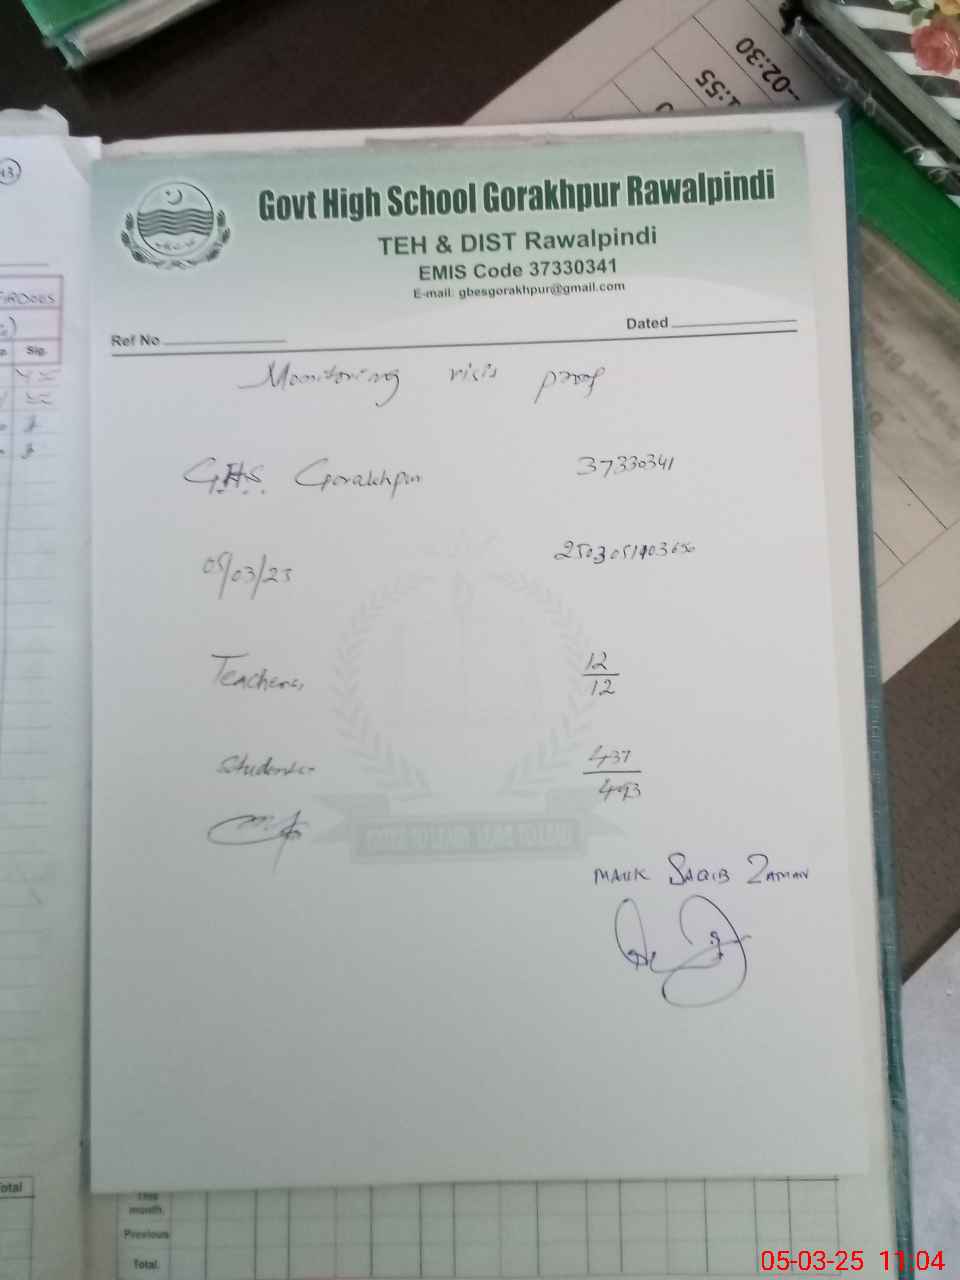 -02:30
1:55
13
FIRDOUS
Sig.
Govt High School Gorakhpur Rawalpindi
TEH & DIST Rawalpindi
EMIS Code 37330341
E-mail: gbesgorakhpur@gmail.com
Ref No
Dated
Monitoring visis proof
GHS Gorakhpur 37330341
05/03/25
Teachers, 12/12
Students 437/493
MALIK SAQIB ZAMAN
Total
This month.
Previous
Total.
05-03-25 11:04